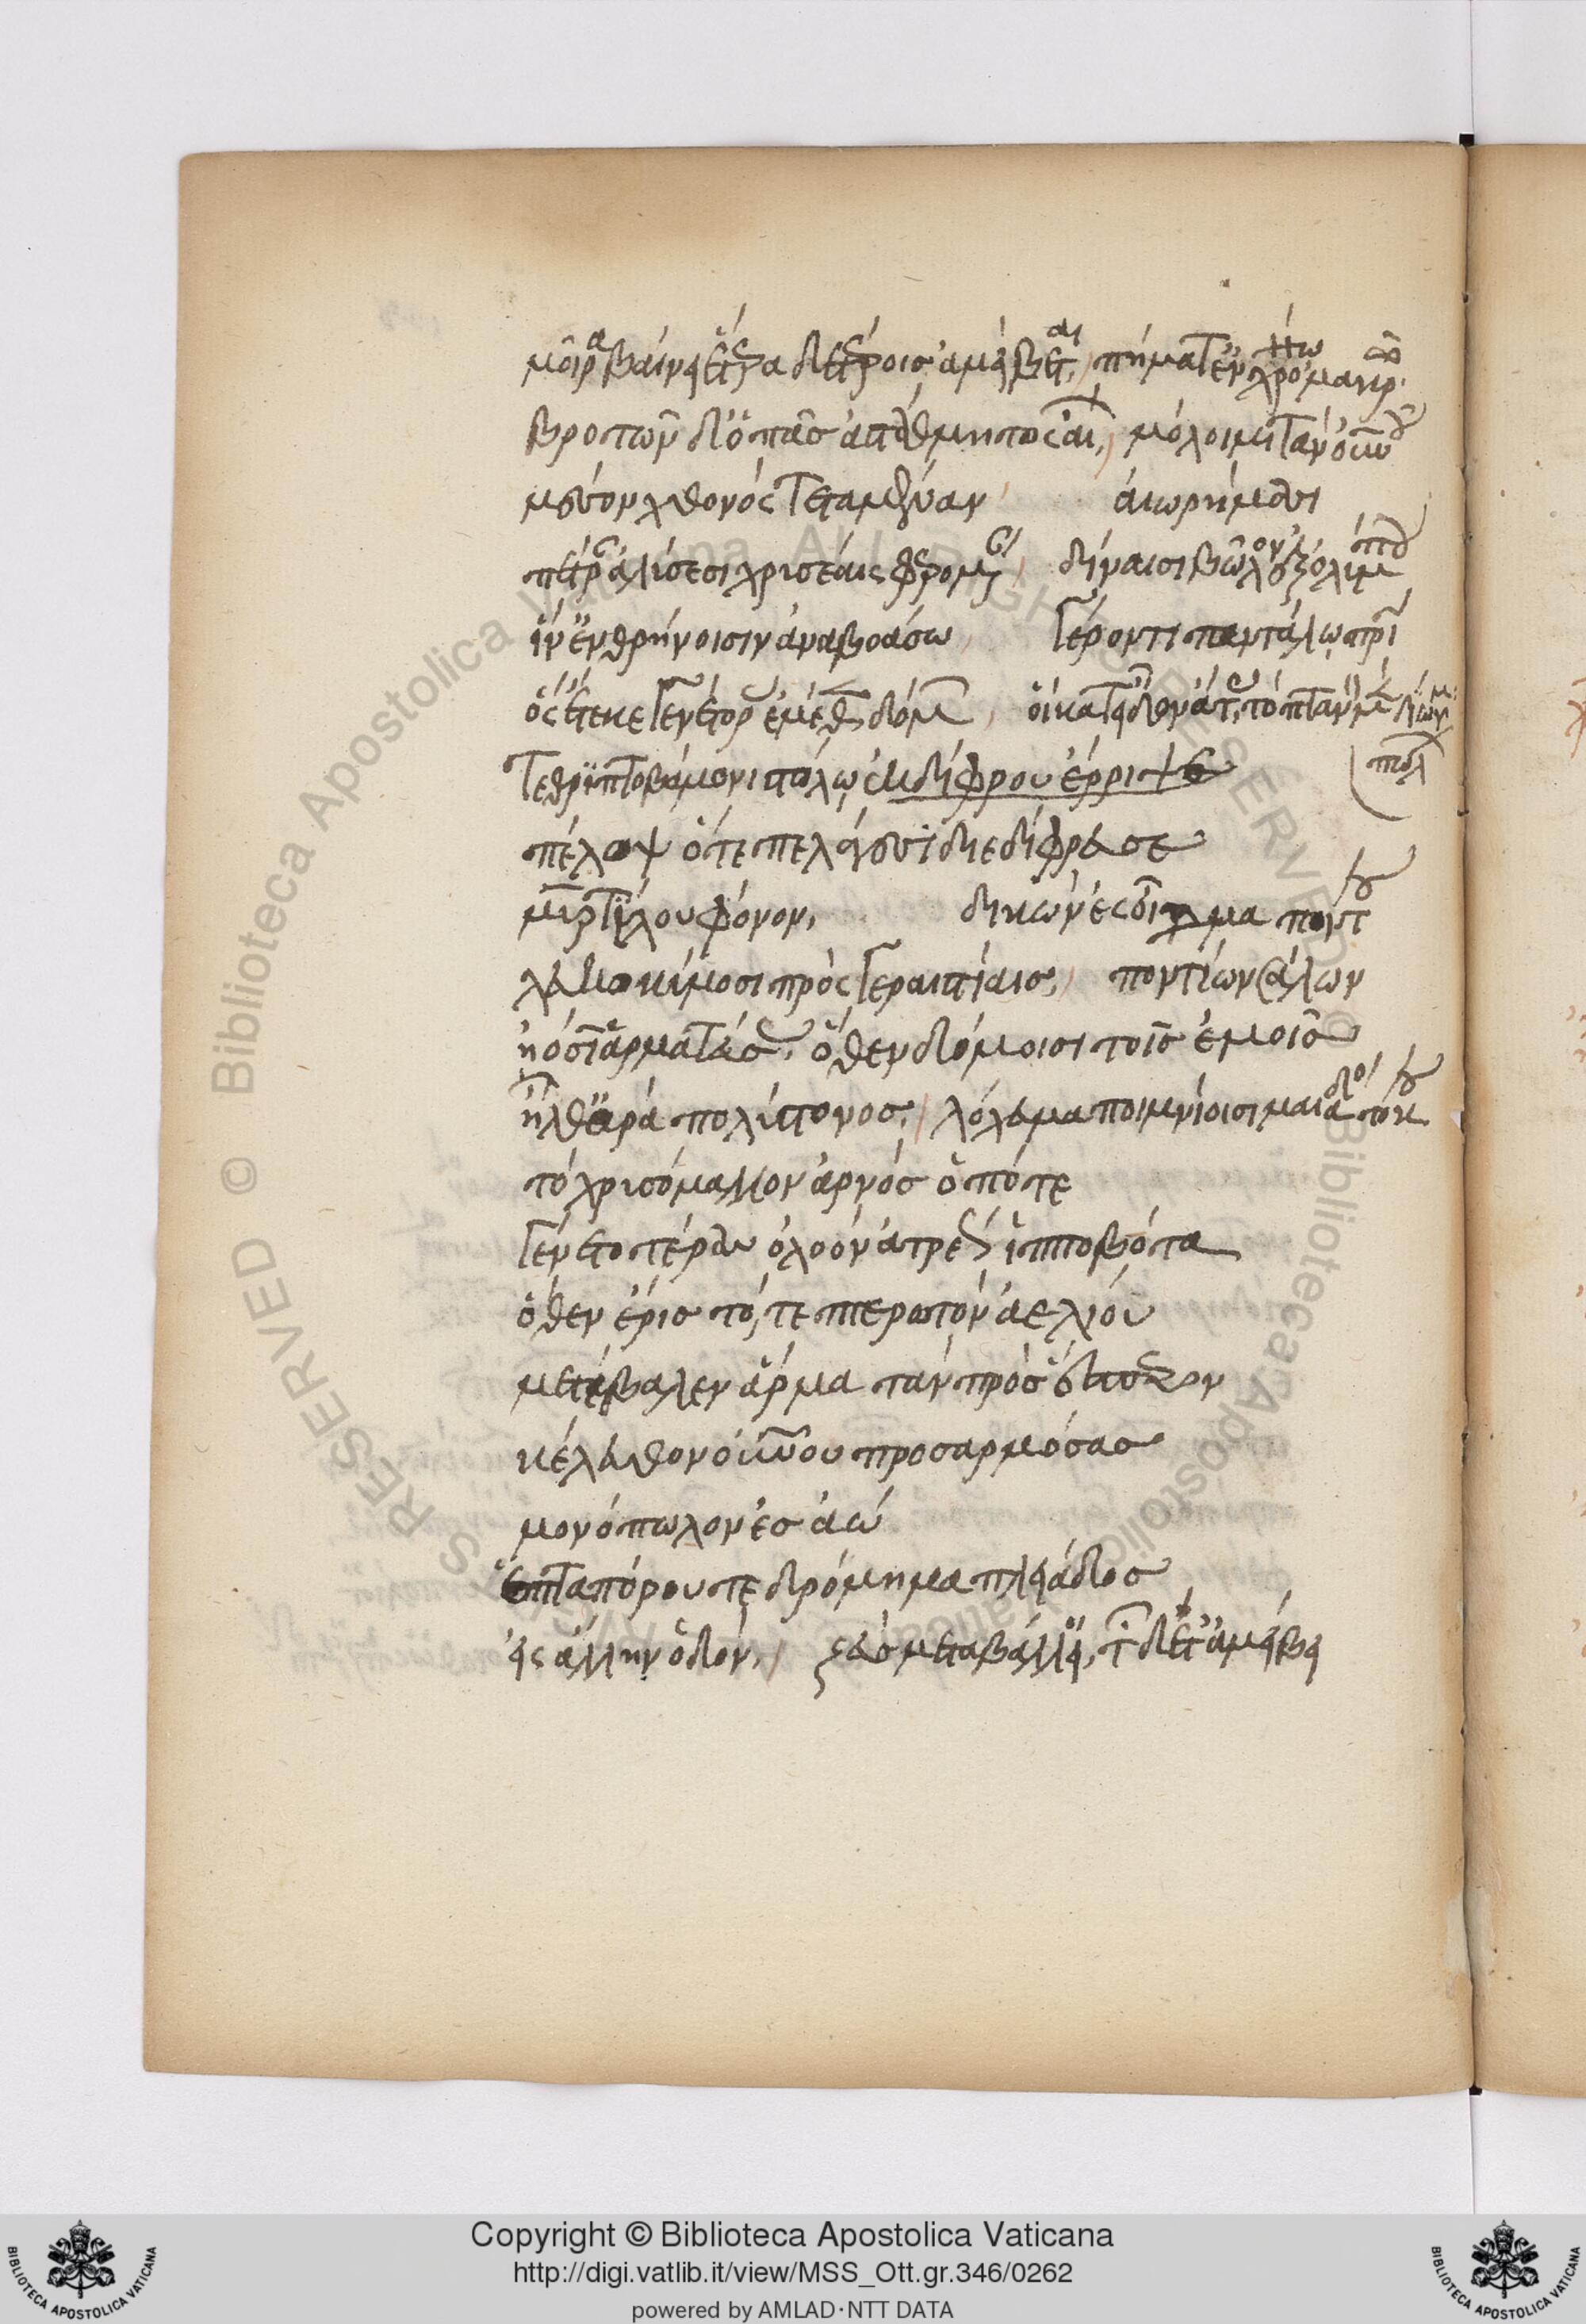 μοῖρα βαίνει ἕτερα δ' ἑτέροις ἀμείβεται, πήματ' ἐν χρόνω μακρῶ
βροτῶν δ' ὁ πᾶς ἀστάθμητος αἰών, μόλοιμι τὰν οὐρανοῦ
μέσον χθονός τεταμέναν αἰωρήμασι
πέτραν ἁλύσεσι χρυσέαις φερομένην δίναισι βῶλον ἐξ ὀλύμπου
ἵν' ἐν θρήνοισιν ἀναβοάσω γέροντι πατρὶ ταντάλω
ὃς ἔτεκε γενέτορας ἐμέθεν δόμων, οἳ κατεῖδον ἄτας, τὸ πτανὸν μὲν δίωγμα
πώλων
τεθριπποβάμονι στόλω ἐκ δίφρου ἔρριψε
πέλοψ ὅτε πελάγεσι διεδίφρευσε
μυρτίλου φόνον, δικὼν ἐς οἶδμα πόντου
λευκοκύμοσι πρὸς γεραιστίαις, ποντίων σάλων
ἠόσιν ἁρματεύσας, ὅθεν δόμοισι τοῖς ἐμοῖς
ἦλθ' ἀρὰ πολύστονος, λόχευμα ποιμνίοισι μαιάδος τόκου
τὸ χρυσόμαλλον ἀρνὸς ὁπότε
γένετο τέρας ὀλοὸν ἀτρέως ἱπποβότα
ὅθεν ἔρις τό, τε πτερωτὸν ἀελίου
μετέβαλεν ἅρμα τὰν πρὸς ἕσπερον
κέλευθον οὐρανοῦ προσαρμόσας
μονόπωλον ἐς ἀῶ
ἑπταπόρου τε δρόμημα πλειάδος
εἰς ἄλλην ὁδὸν, ζεὺς μεταβάλλει, τῶνδέ τ' ἀμείβει